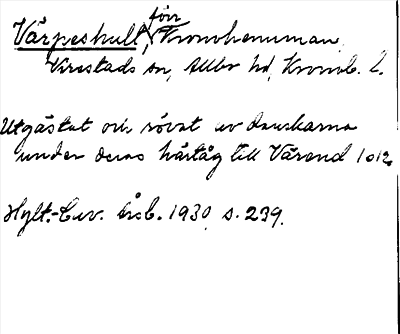 Värpeshult, förr Kronohemman,
Virestads sn, Allbo hd, Kronob. L.
Utgästat och rövat av danskarna
under deras härtåg till Värend 1612.
Hylt.-Cav. årsb. 1930 s. 239.